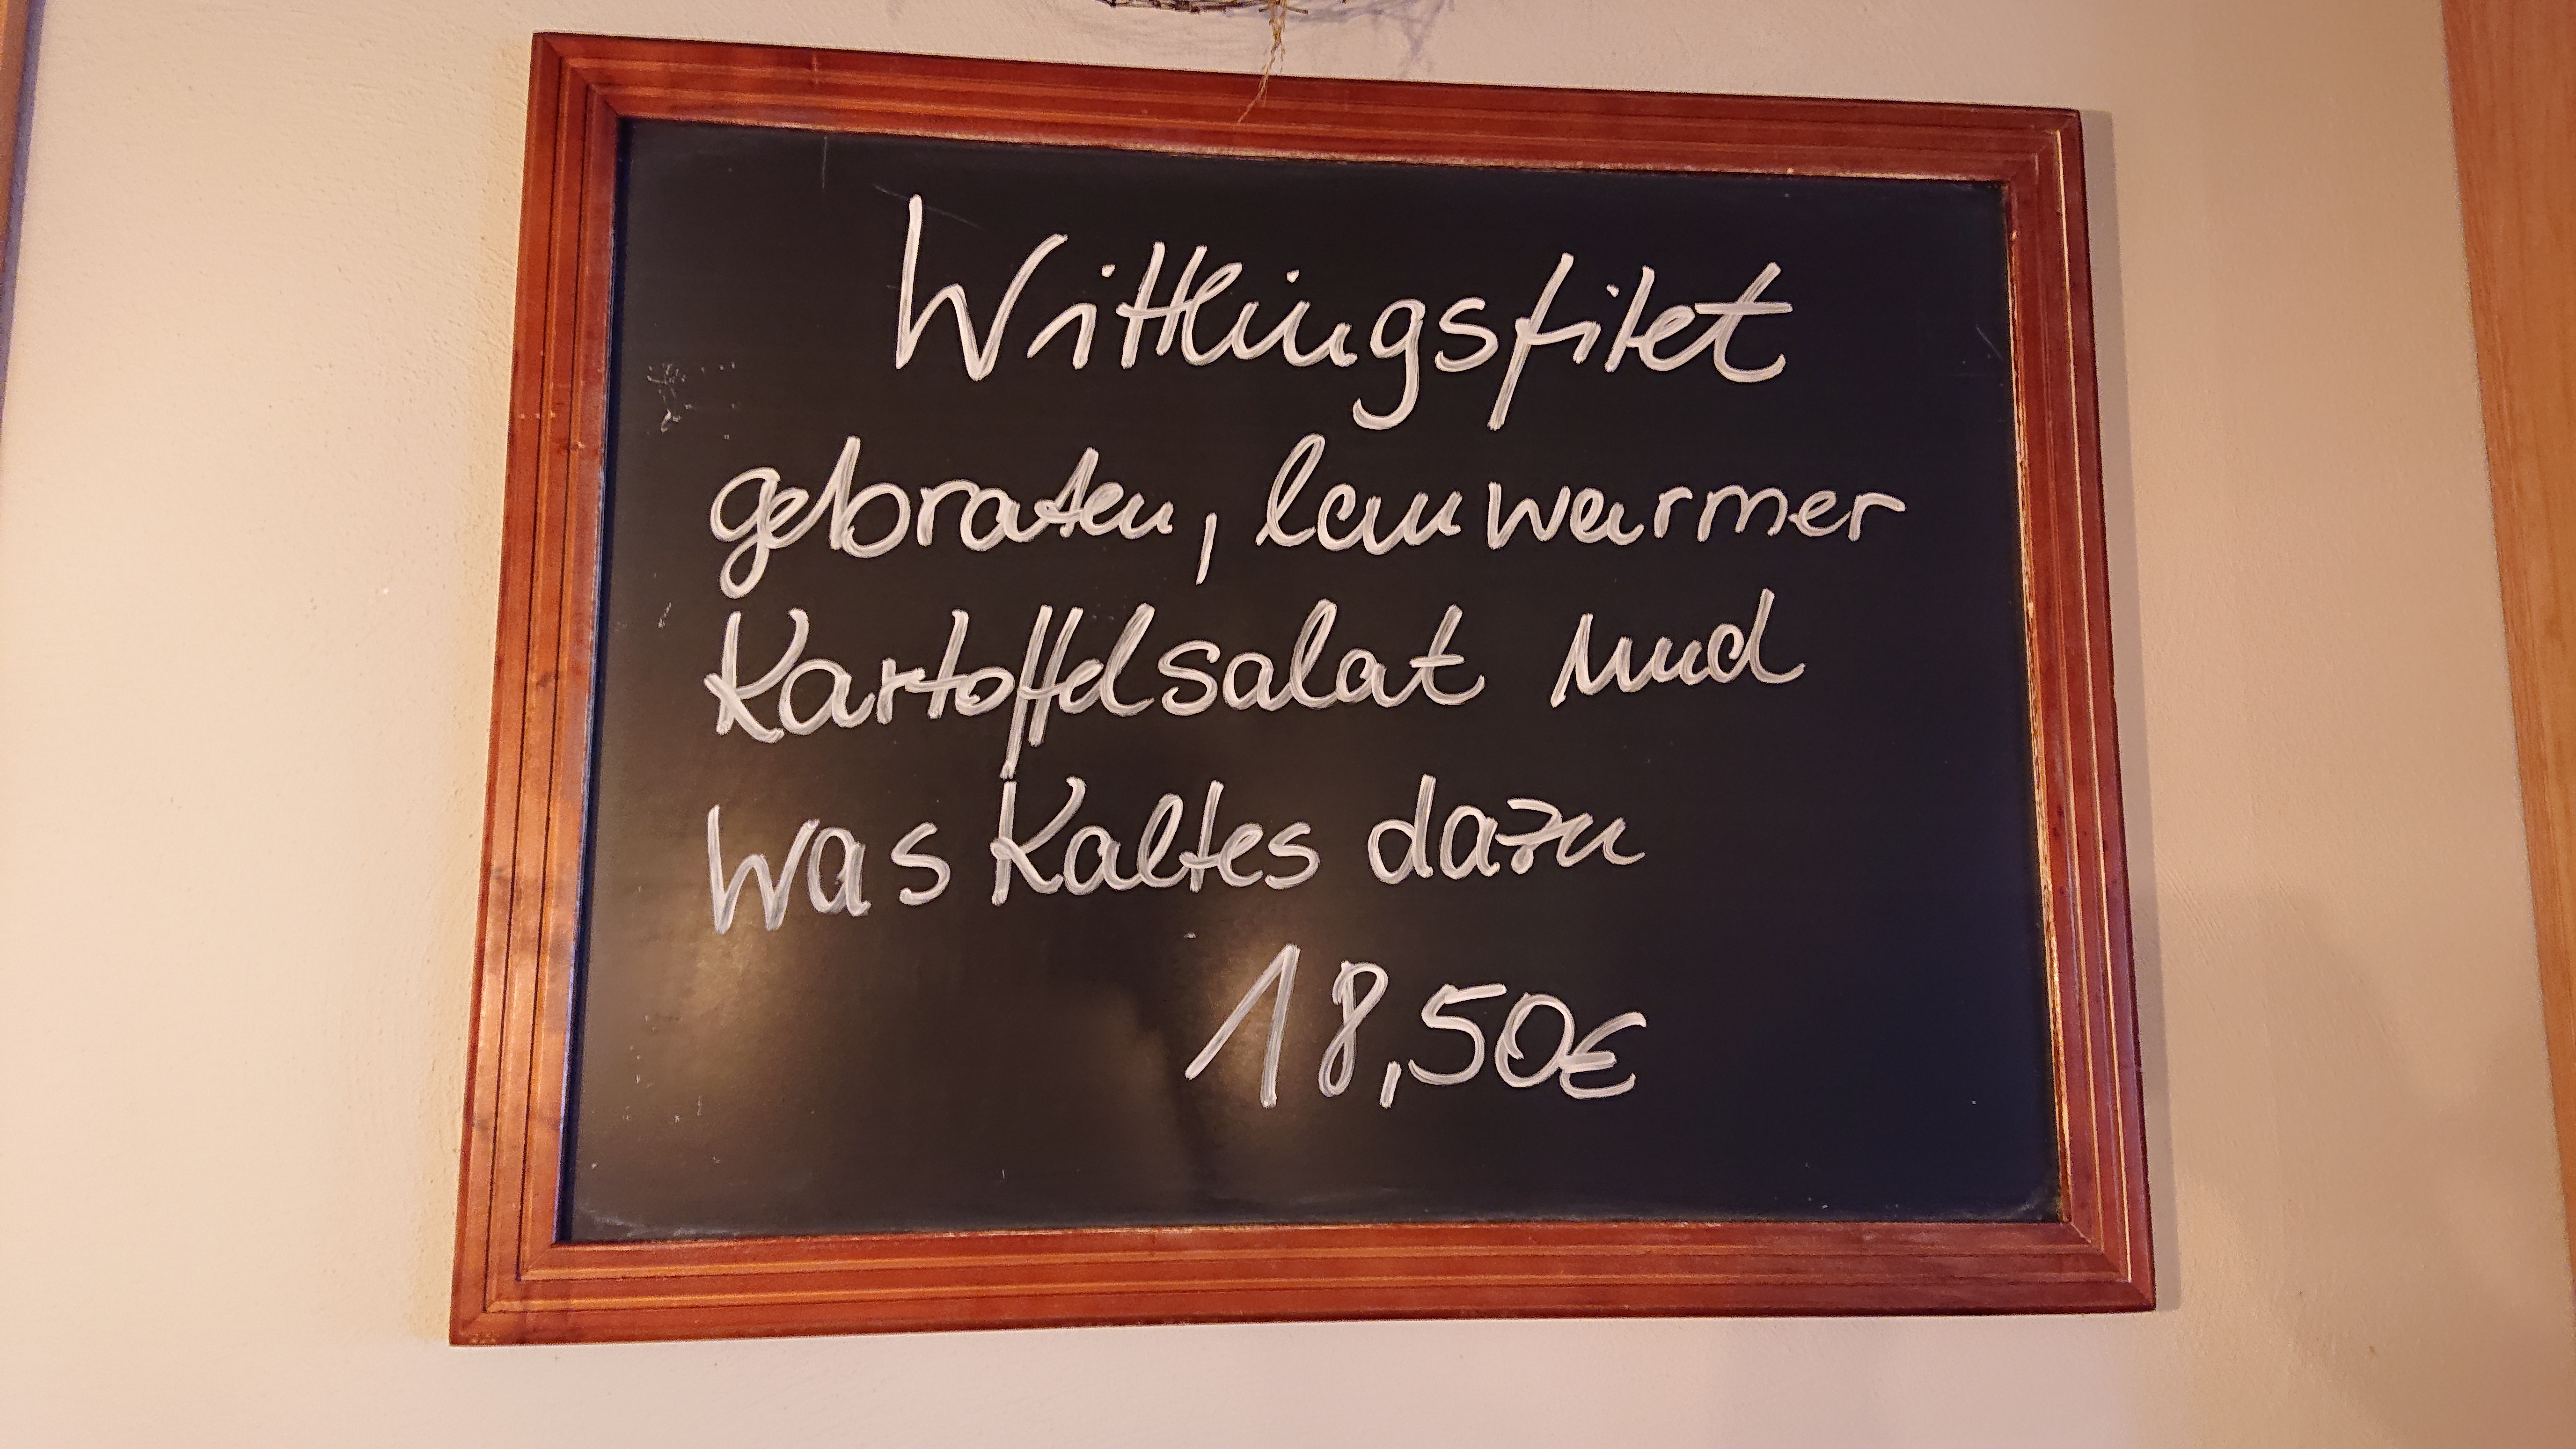 Wittlingsfilet
gebraten, lauwarmer
Kartoffelsalat und
was Kaltes dazu
18,50€